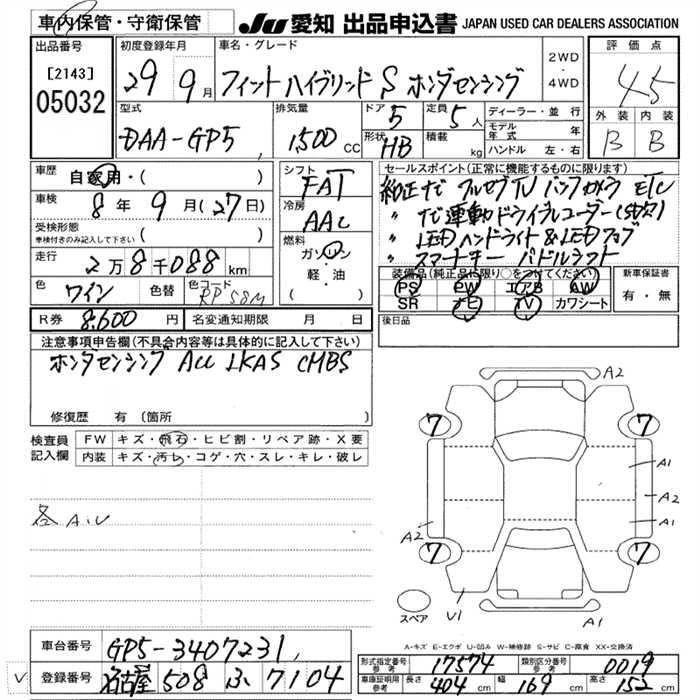 車内保管・守衛保管
JU 愛知 出品申込書 JAPAN USED CAR DEALERS ASSOCIATION
出品番号 初度登録年月 車名・グレード 評価点
[2143]
05032
29 9月 フィットハイブリッド S ホンダセンシング 2WD・4WD
4.5
外装 内装
B B
型式 排気量 ドア 定員 ディーラー・並行
DAA-GP5 1,500 CC 5 5人
モデル年式 年
形状 積載 ハンドル 左・右
HB kg
車歴 自家用・( )
車検 8年 9月(27日)
受検形態
車検付きのみ記入して下さい ( )
走行 2万8千088km
色 ワイン 色替 色コード RP58M
シフト FAT
冷房 AAC
燃料 ガソリン
軽・油
( )
セールスポイント(正常に機能するものに限ります)
純正ナビ フルセグTV バックカメラ ETC
〃 ナビ連動ドライブレコーダー
〃 LEDヘッドライト&LEDフォグ
〃 スマートキー パドルシフト
装備品(純正品に限り○をつけてください) 新車保証書
PS PW エアB AW
SR ナビ TV カワシート
有・無
R券 8,600円 名変通知期限 月 日 後日品
注意事項申告欄(不具合内容等は具体的に記入して下さい)
ホンダセンシング ACC LKAS CMBS
修復歴 有(箇所
検査員記入欄
FW キズ・飛石・ヒビ割・リペア跡・X要
内装 キズ・汚レ・コゲ・穴・スレ・キレ・破レ
各A.U
A2
7 7
A1
A2
A1
A2
7 7
U1
A1
スペア
A-キズ E-エクボ U-凹み W-補修跡 S-サビ C-腐食 XX-交換済
車台番号 GP5-3407231
登録番号 名古屋 508 ふ 7104
V
形式指定番号 参考 17574 類別区分番号 参考 0019
車庫証明用 参考 長さ 404cm 幅 169cm 高さ 152cm